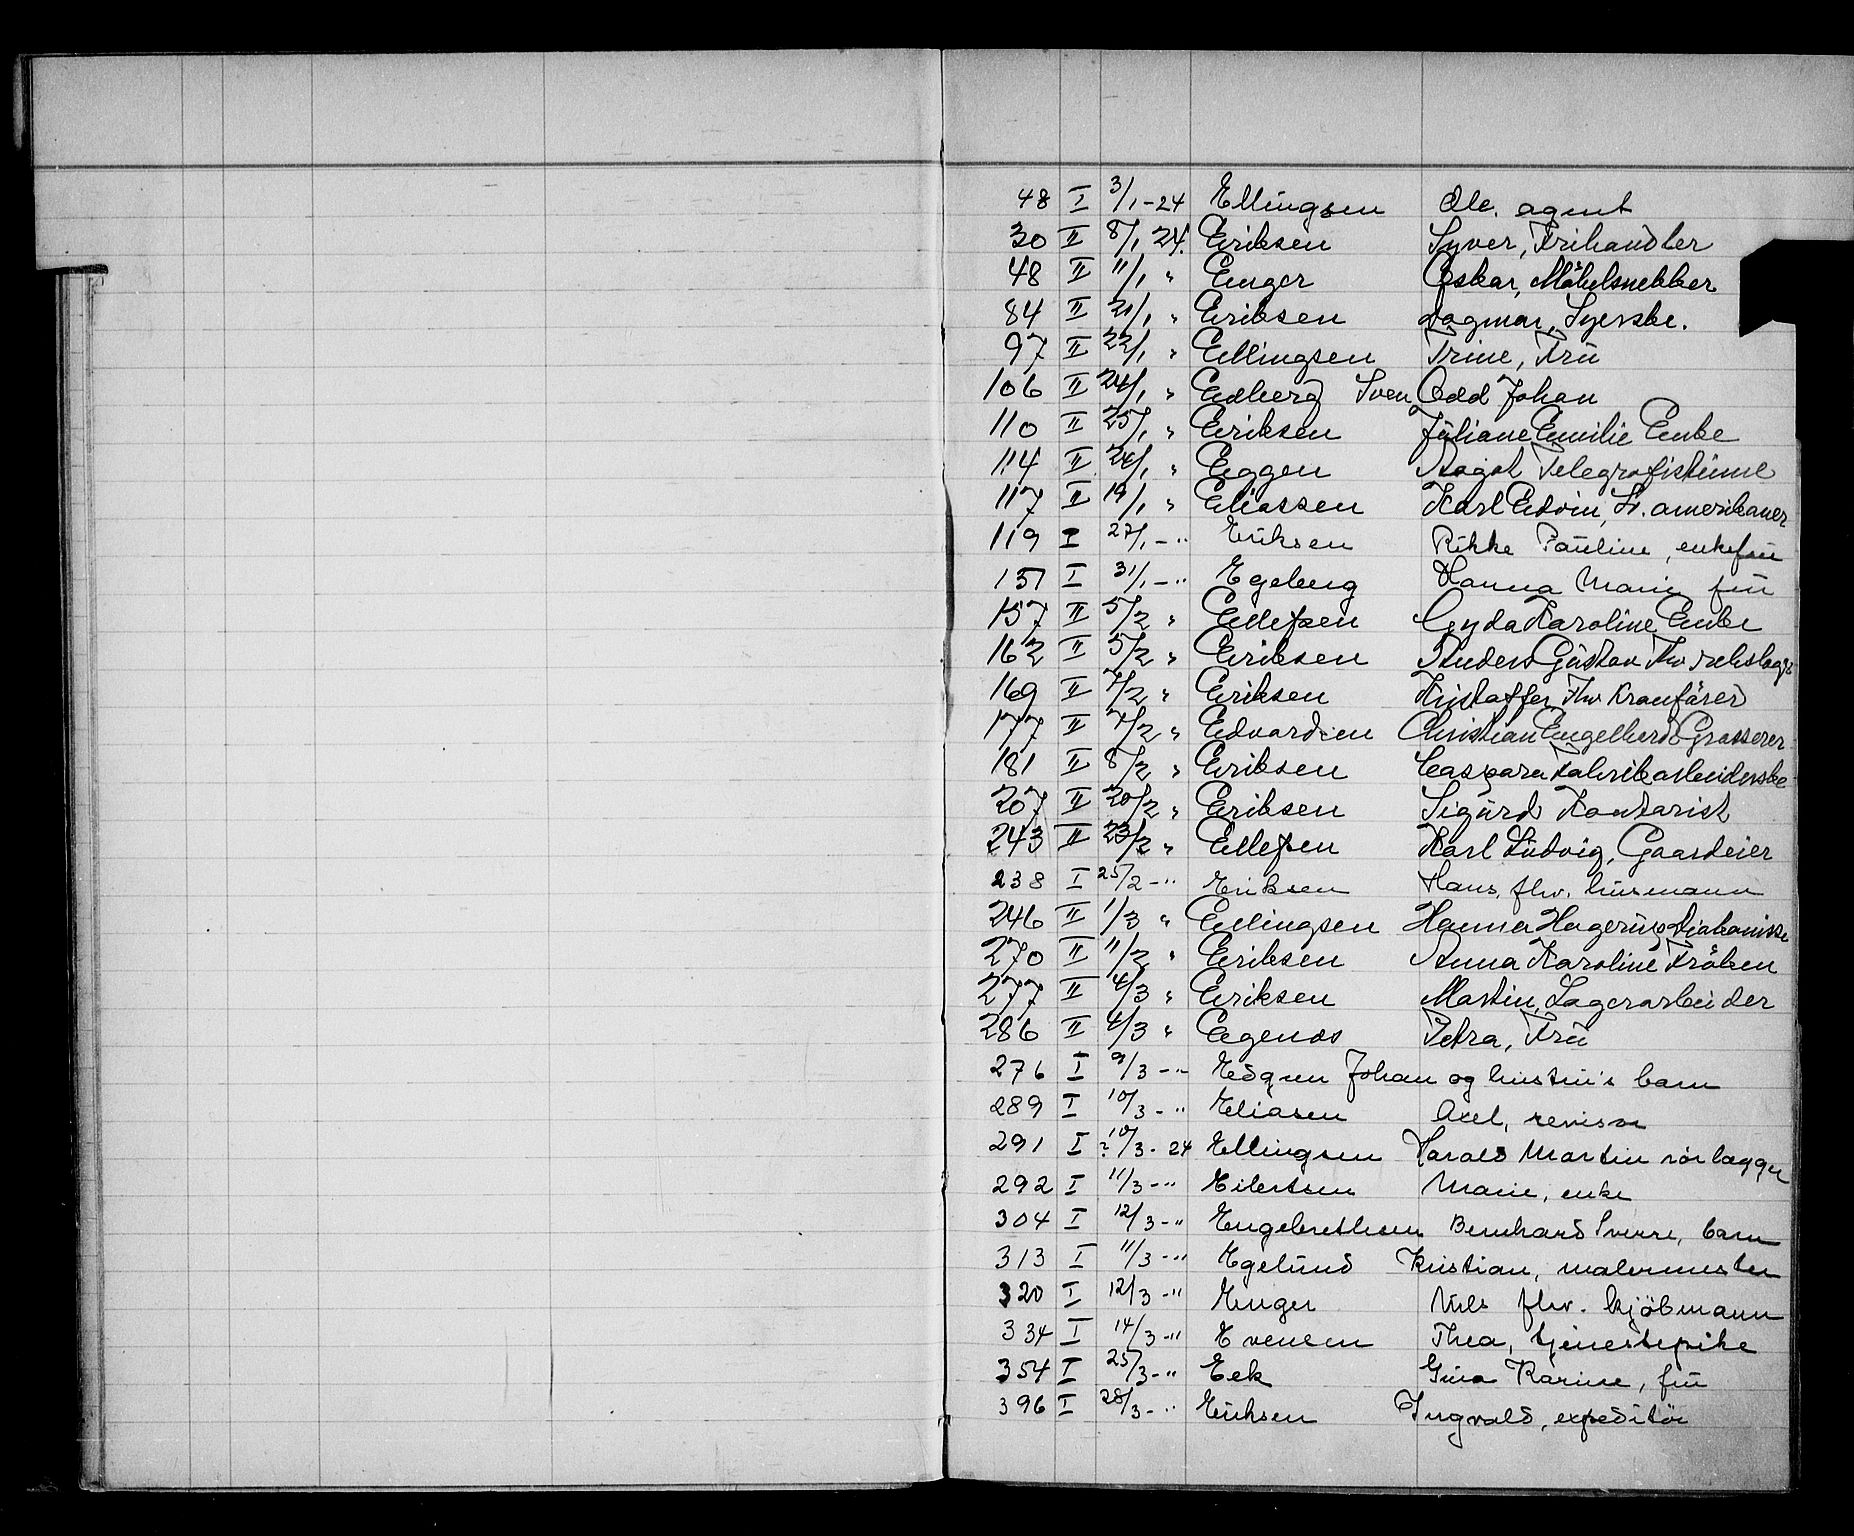 48 I 3/1-24 Ellingsen Ole. agent
30 II 8/1 24. Eriksen Syver, Frihandler
48 II 11/1 " Enger Oskar, Möbelsnekker
84 II 21/1 " Eriksen Dagmar, Syerske.
97 II 22/1 " Ellingsen Trine, Fru
106 II 24/1 " Edberg Sven Odd Johan
110 II 25/1 " Eriksen Juliane Emilie Enke
114 II 24/1 " Eggen Aagot Telegrafistinne
117 II 19/1 " Eliassen Karl Edvin, St. amerikaner
119 I 27/1-" Eriksen Rikke Pauline, enkefru
151 I 31/1-" Egeberg Hanna Marie fru
157 II 5/2 " Ellefsen Gyda Karoline Enke
162 II 5/2 " Eriksen Anders Gustav Fhv
169 II 7/2 " Eriksen Kristoffer Fhv Kranförer
177 II 7/2 " Edvardsen Christian Engelhard Grosserer
181 II 8/2 " Eriksen Caspara Fabrikarbeiderske
207 II 20/2 " Eriksen Sigurd Kontorist
243 II 23/2 " Ellefsen Karl Ludvig, Gaardeier
238 I 25/2-" Eriksen Hans, fhv. husmann
246 II 1/3 " Ellingsen Hanna Hagerup Diakonisse
270 II 11/2 " Eriksen Anna Karoline Fröken
277 II 4/3 " Eriksen Martin, Lagerarbeider
286 II 4/3 " Egenæs Petra, Fru
276 I 9/3-" Edgren Johan og hustru's barn
289 I 10/3-" Eliasen Axel, revisor
291 I ? 10/3-24 Ellingsen Harald Martin rörlægger
292 I 11/3-" Eilertsen Marie, enke
304 I 12/3-" Engebrethsen Bernhard Sverre, barn
313 I 11/3-" Egelund Kristian, malermester
320 I 12/3-" Enger Nils fhv. kjöbmann
334 I 14/3-" Evensen Thea, tjenestepike
354 I 25/3-" Eek Gina Karine, fru
396 I 28/3-" Eriksen Ingvald, expeditör